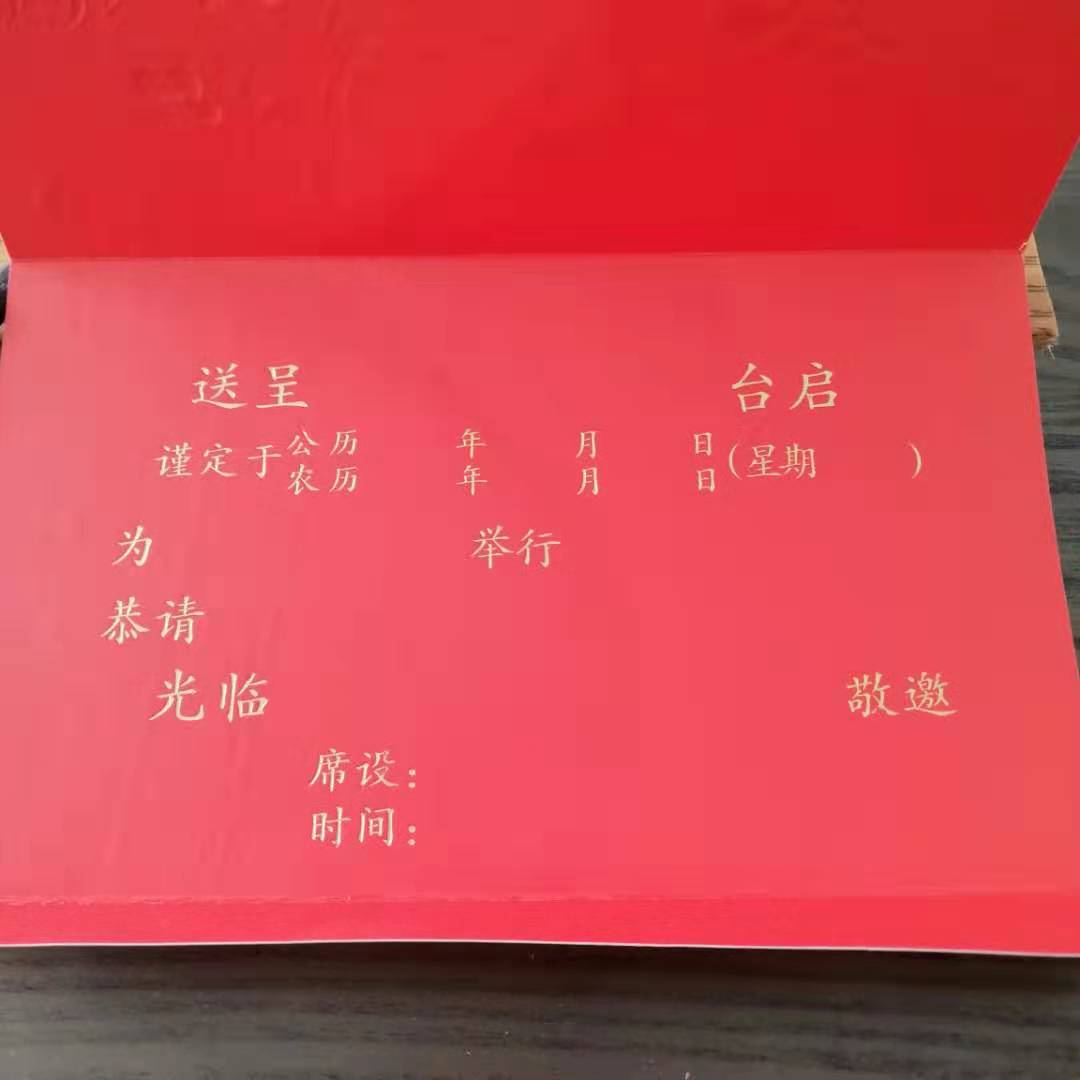 送呈 台启
谨定于公历 年 月 日(星期 )
农历 年 月 日
为 举行
恭请
光临 敬邀
席设:
时间: